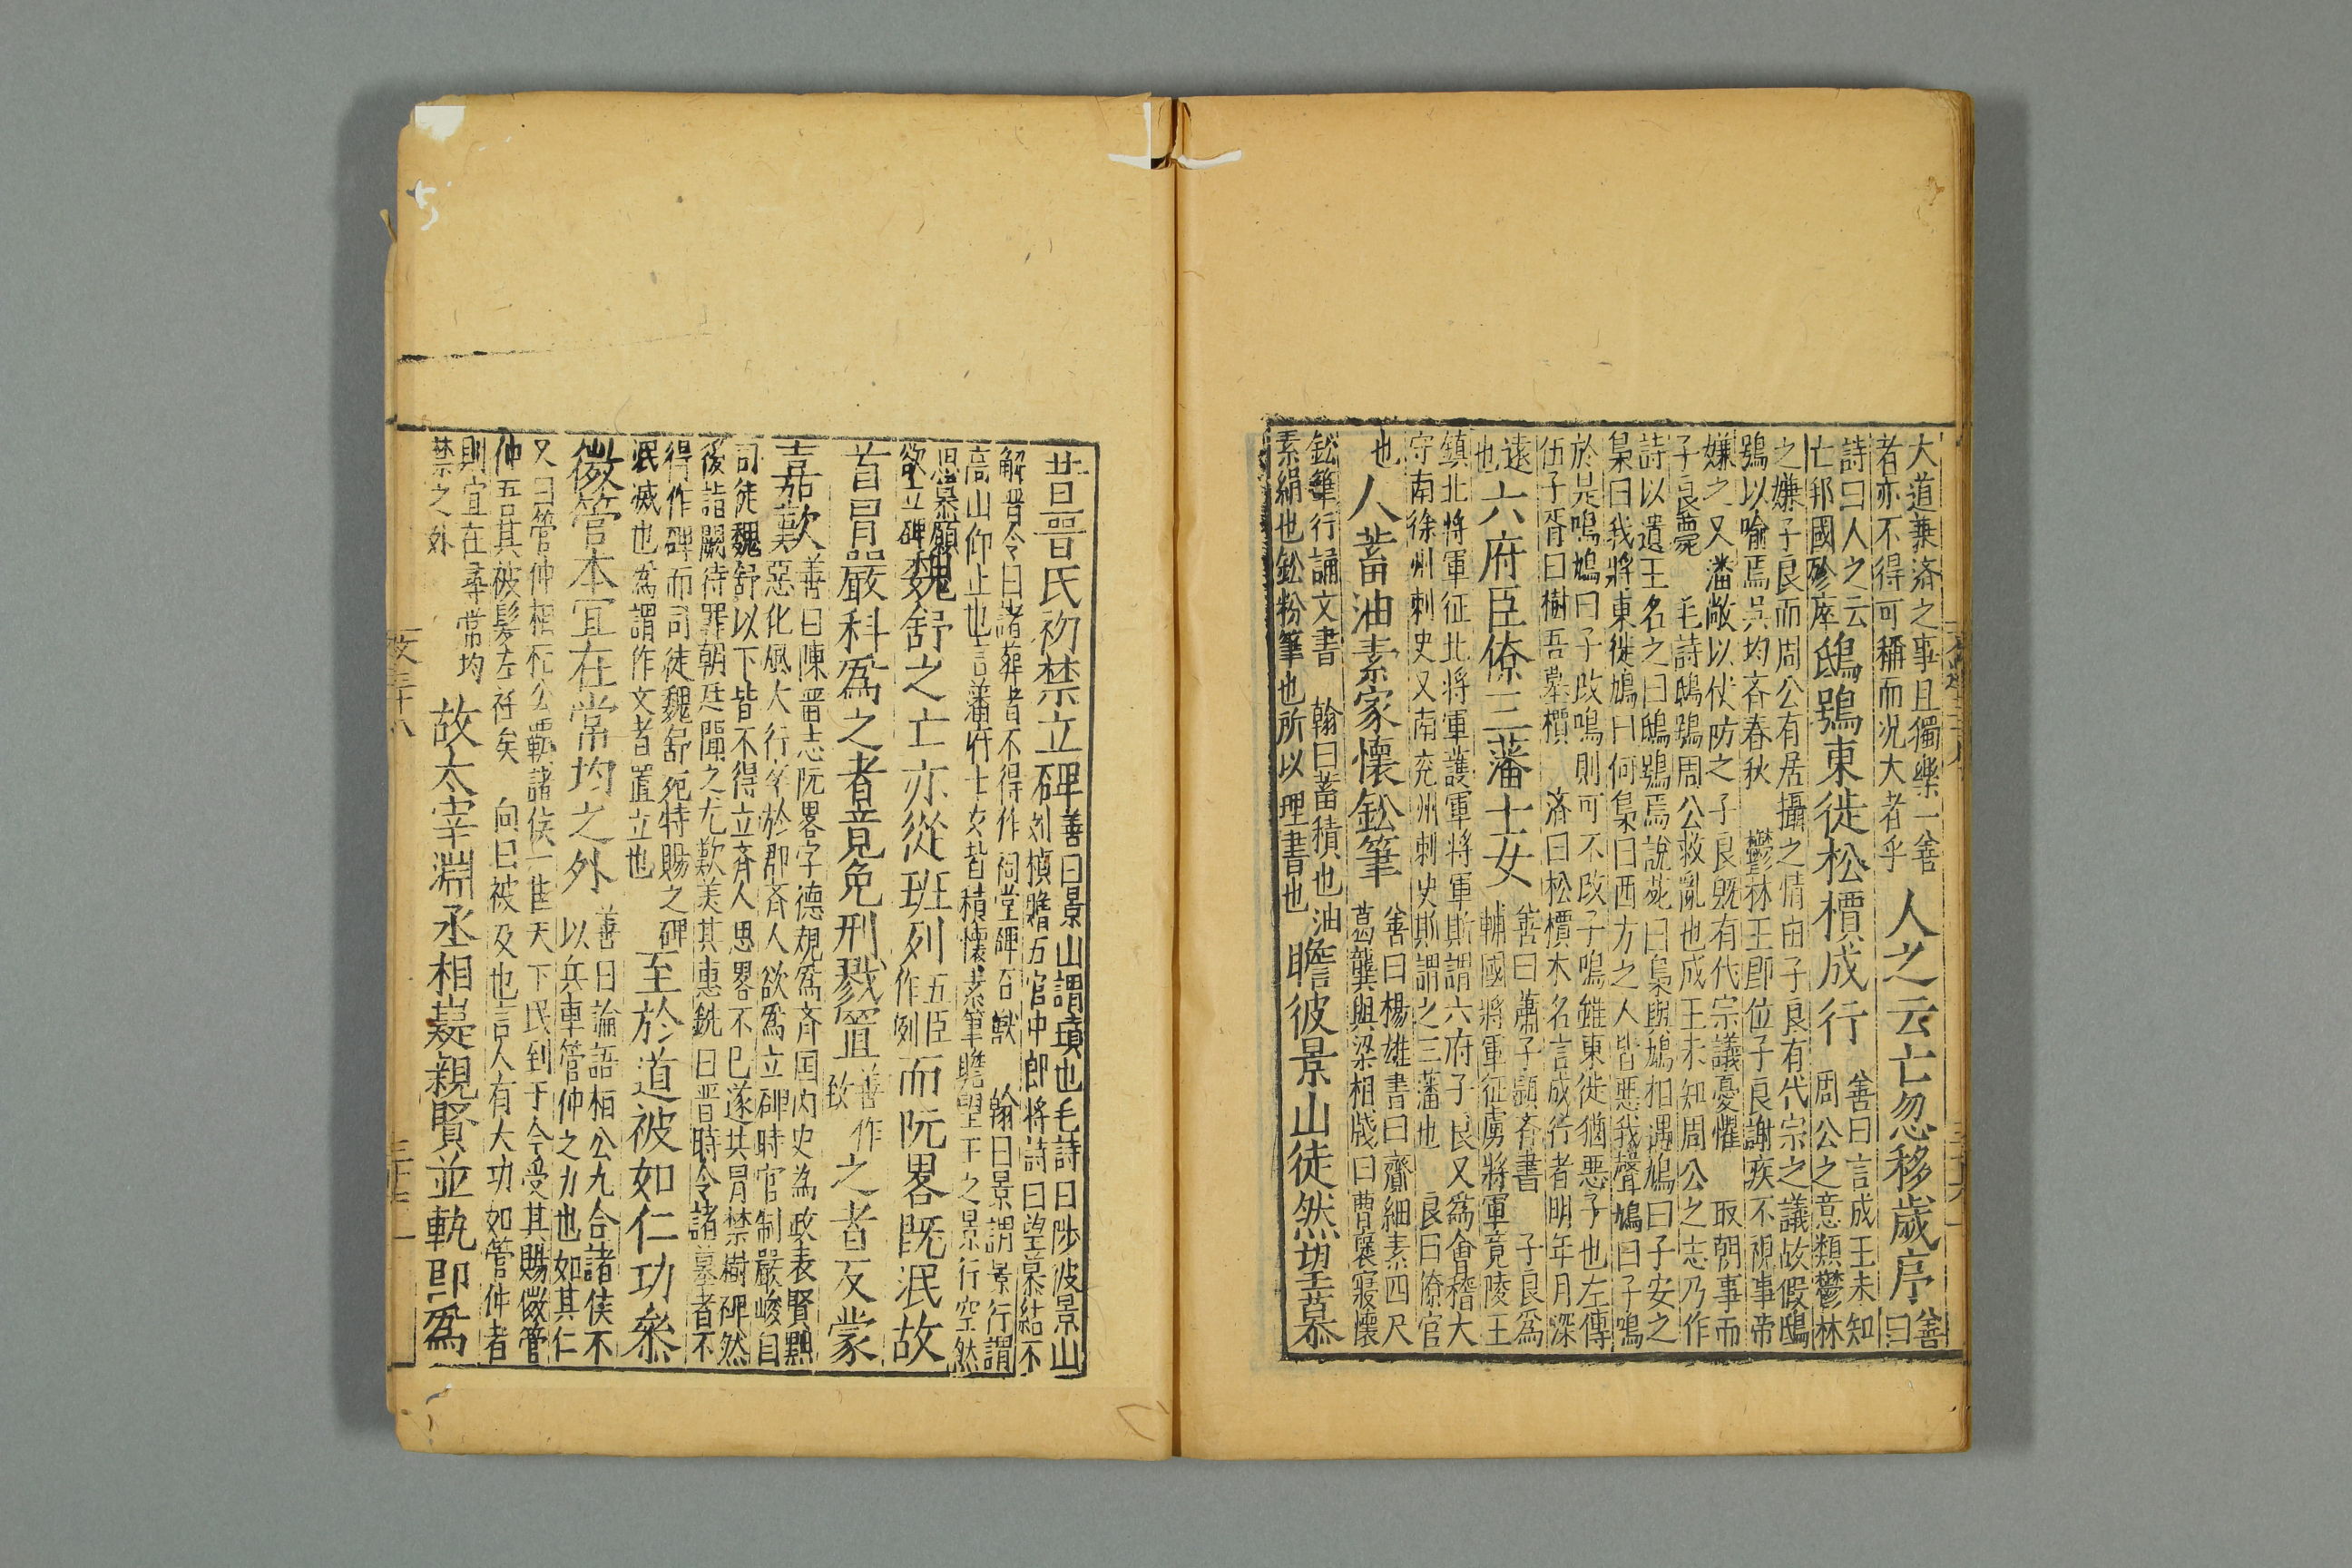 大道兼濟之事且獨樂一善
者亦不得可稱而況大者乎
人之云亡忽移歲序
善
曰
詩曰人之云
亡邦國殄瘁
鴟鴞東徙松檟成行
善曰言成王未知
周公之意類鬱林
之嫌子良而周公有居攝之情由子良有代宗之議故假鴟
鴞以喻焉吳均齊春秋 鬱林王即位子良謝疾不視事帝
嫌之又潘敞以仗防之子良旣有代宗議憂懼 取朝事而
子良薨 毛詩鴟鴞周公救亂也成王未知周公之志乃作
詩以遺王名之曰鴟鴞焉說苑曰梟與鳩相遇鳩曰子安之
梟曰我將東徙鳩曰何梟曰西方之人皆惡我聲鳩曰子鳴
於是鳴鳩曰子改鳴則可不改子鳴雖東徙猶惡子也左傳
伍子胥曰樹吾墓檟 濟曰松檟木名言成行者明年月深
遠
也
六府臣僚三藩士女
善曰蕭子顯齊書 子良爲
輔國將軍征虜將軍竟陵王
鎮北將軍征北將軍護軍將軍斯謂六府子良又爲會稽大
守南徐州刺史又南兖州刺史斯謂之三藩也 良曰僚官
也
人蓄油素家懷鈆筆
善曰楊雄書曰齎細素四尺
葛龔與梁相牋曰曹襃寢懷
鈆筆行誦文書 翰曰蓄積也油
素絹也鈆粉筆也所以理書也
瞻彼景山徒然望慕
昔晋氏初禁立碑
善曰景山謂墳也毛詩曰陟彼景山
刘楨贈五官中郎將詩曰望慕結不
解晋令曰諸葬者不得作祠堂碑石獸 翰曰景謂景行謂
高山仰止也言藩府士女皆積懷素筆瞻望王之景行空然
思慕願
欲立碑
魏舒之亡亦從班列
五臣
作例
而阮畧旣泯故
首冒嚴科爲之者竟免刑戮置
善作
致
之者反蒙
嘉歎
善曰陳晋志阮畧字德規爲齊国内史為政表賢黜
惡化風大行卒於郡齊人欲爲立碑時官制嚴峻自
司徒魏舒以下皆不得立齊人思畧不已遂共冒禁樹碑然
後詣闕待罪朝廷聞之尤歎美其惠 銑曰晋時令諸墓者不
得作碑而司徒魏舒死特賜之碑
泯滅也爲謂作文者置立也
至於道被如仁功叅
微管本宜在常均之外
善曰論語桓公九合諸侯不
以兵車管仲之力也如其仁
又曰管仲相桓公霸諸侯一匡天下民到于今受其賜微管
仲吾其被髪左衽矣 向曰被及也言人有大功如管仲者
則宜在尋常均
禁之外
故太宰淵丞相嶷親賢並軌即爲
文三十八